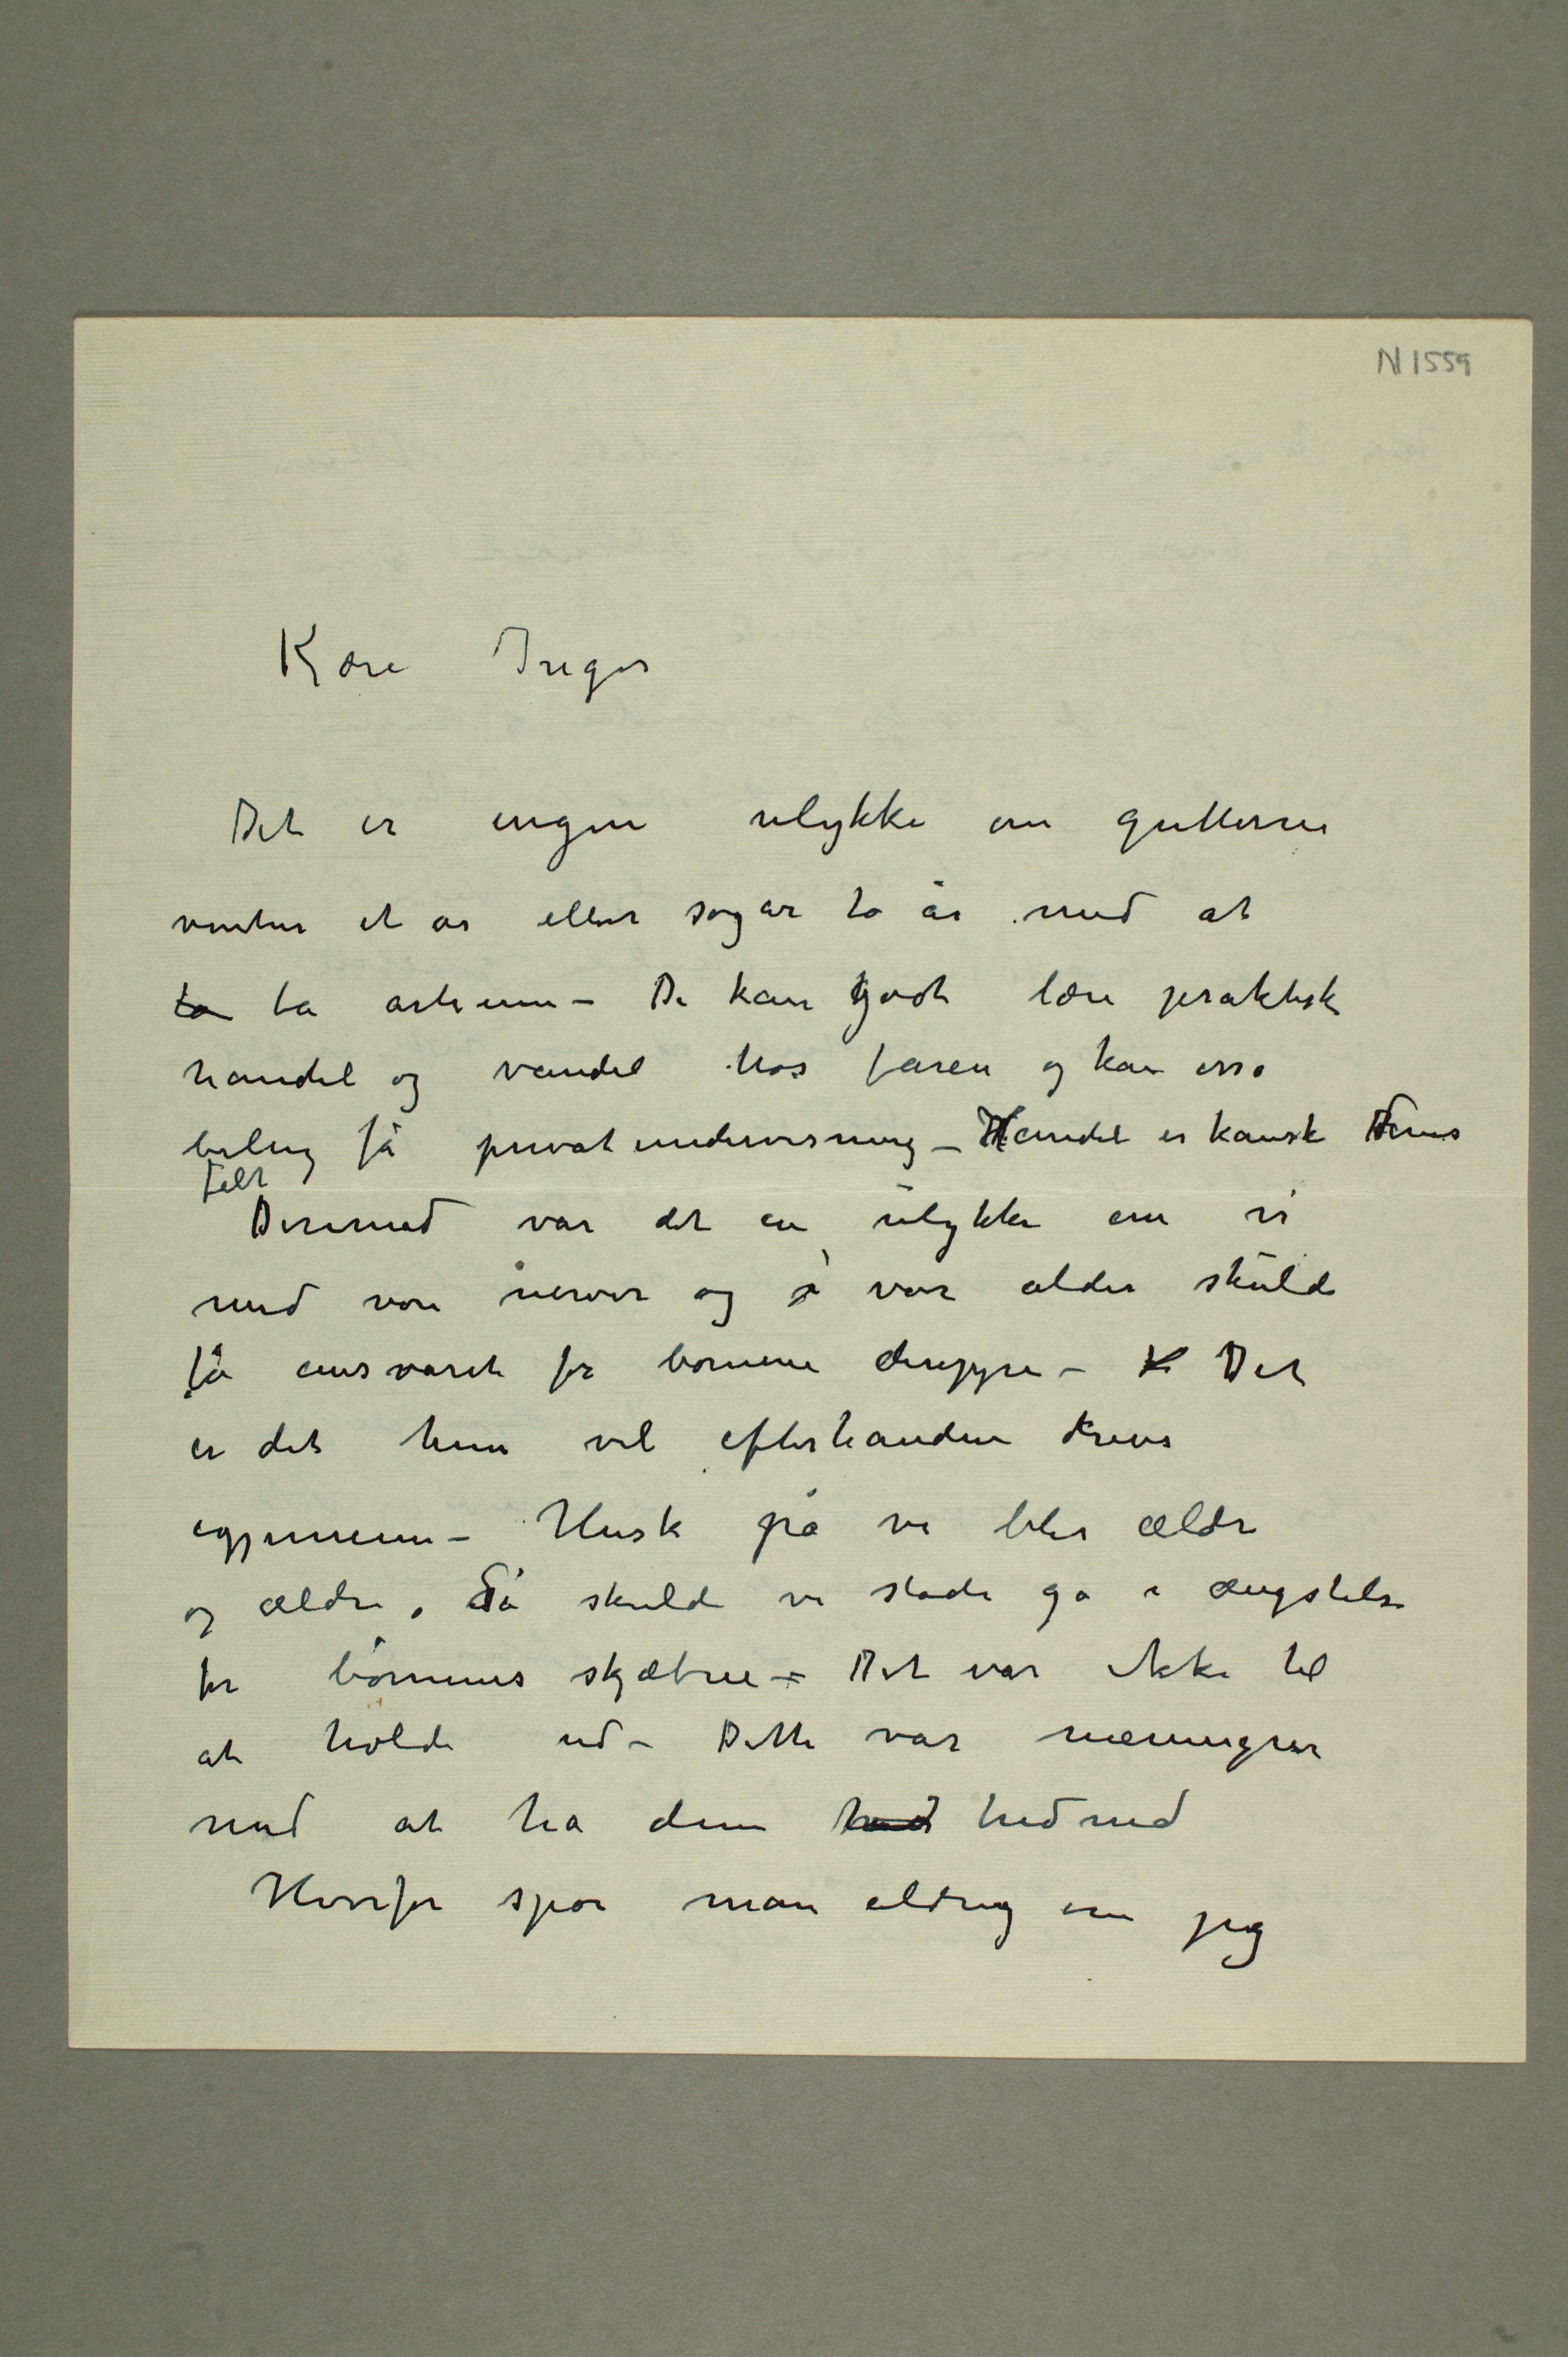 N 1559
Kære Inger
Det er ingen ulykke om gutterne
venter et år eller sogar to år med at
ta ta artium – De kan godt lære praktisk
handel og vandel hos faren og kan osså
billig få privatundervisning – Handel er kansk deres
felt
Derimod var det en ulykke om vi
med vore nerver og i vor alder skulde
få ansvaret for børnene deroppe – Det
er det hun vil efterhånden kreve
igjennem – Husk på vi blir ældre
og ældre, Så skulde vi stadi gå i ængstelse
for børnenes skjæbne – Det var ikke til
at holde ud – Dette var meningen
med at ha dem hed hed ned
Hvorfor spør man aldrig om jeg